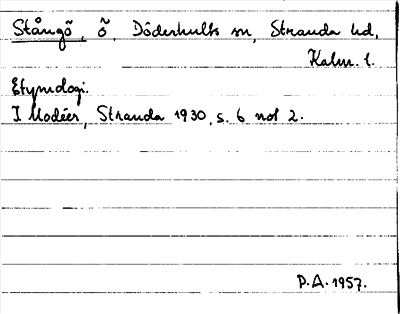 Stångö, ö, Döderhults sn, Stranda hd,
Kalm. l.
Etymologi.
I Modéer, Stranda 1930, s. 6 not 2.
P.A. 1957.